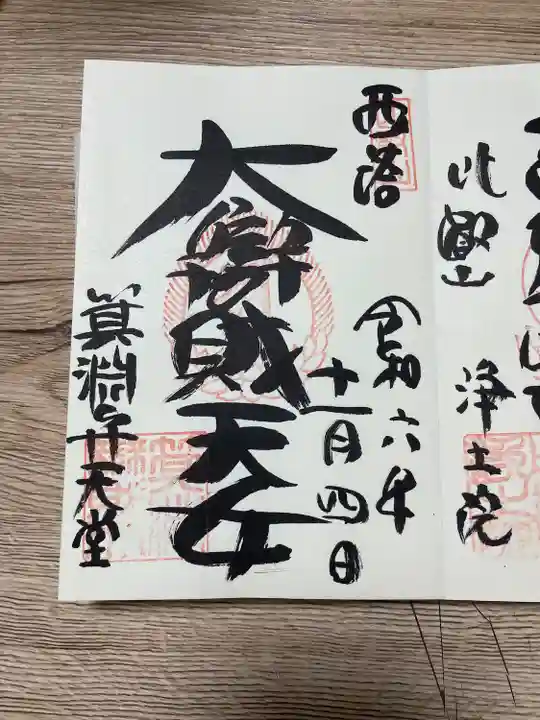 比叡山
浄土院
西塔
令和六年
十一月四日
大辯財天女
箕淵弁天堂